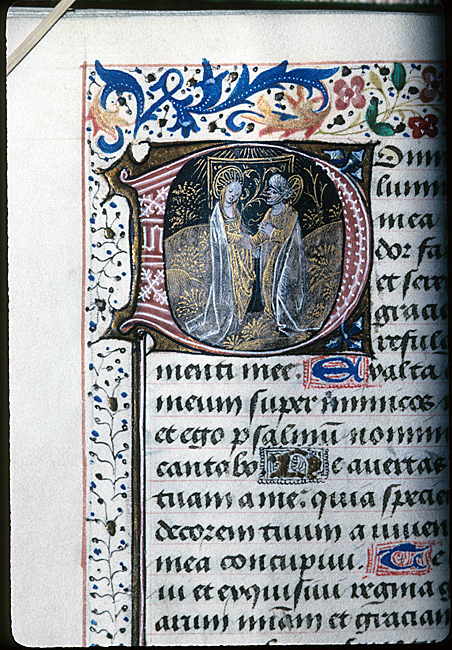 DOmin
lumin
mea
dor fa
et sere
gracia
reful
menti mee Exalta
meum super inimicos
et ego psalmū nomin
cantabo Ne auertas
tuam a me: quia specie
decorem tuum a iuuen
mea concupiui. Te
ui et exquisiui regina g
et gracian